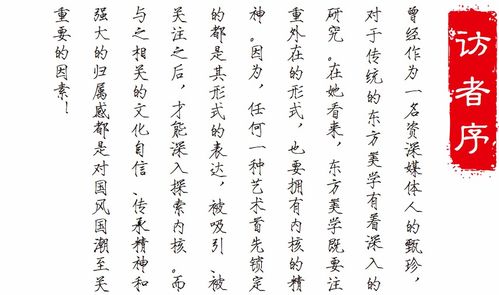 访者序
曾经作为一名资深媒体人的甄珍，
对于传统的东方美学有着深入的
研究。在她看来，东方美学既要注
重外在的形式，也要拥有内核的精
神。因为，任何一种艺术首先锁定
的都是其形式的表达，被吸引、被
关注之后，才能深入探索内核。而
与之相关的文化自信、传承精神和
强大的归属感都是对国风国潮至关
重要的因素！